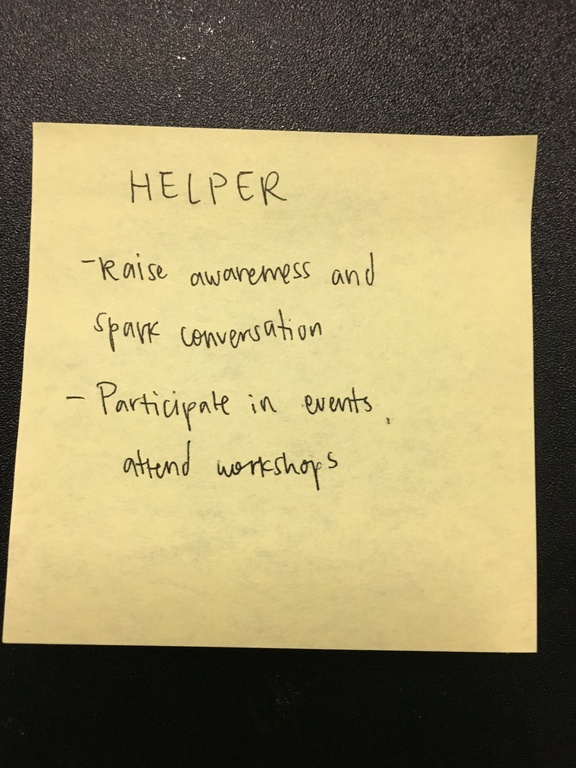 HELPER
- Raise awareness and
spark conversation
- Participate in events,
attend workshops